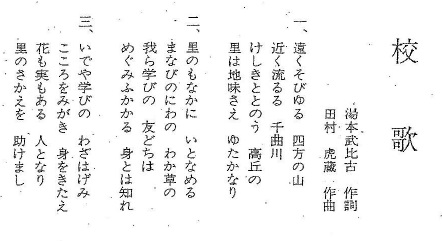 校歌
湯本武比古　作詞
田村　虎蔵　作曲
一、遠くそびゆる　四方の山
近く流るる　千曲川
けしきととのう　高丘の
里は地味さえ　ゆたかなり
二、里のもなかに　いとなめる
まなびのにわの　わか草の
我ら学びの　友どちは
めぐみふかかる　身とは知れ
三、いでや学びの　わざはげみ
こころをみがき　身をきたえ
花も実もある　人となり
里のさかえを　助けまし